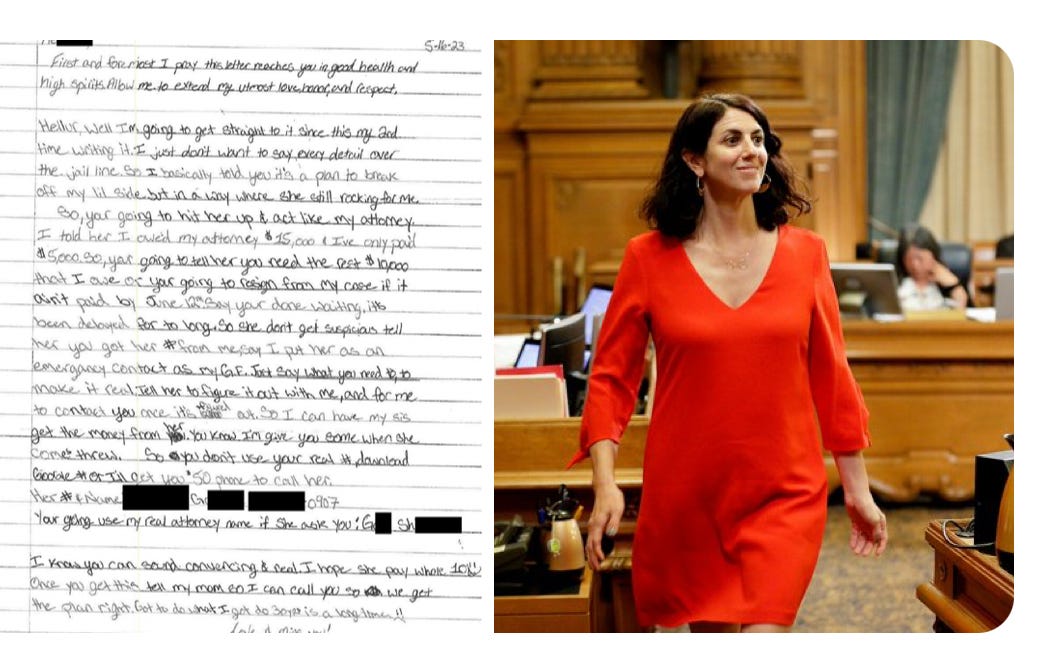 5-16-23
First and foremost I pray this letter reaches you in good health and
high spirits. Allow me to extend my utmost love, honor, and respect.
Hellur, Well I'm going to get straight to it since this my 2nd
time writing it. I just don't want to say every detail over
the jail line. So I basically told you it's a plan to break
off my lil side, but in a way where she still rocking for me.
So, your going to hit her up & act like my attorney.
I told her I owed my attorney $15,000 & I've only paid
$5000. So, your going to tell her you need the rest $10,000
that I owe or your going to resign from my case if it
ain't paid by June 12th. Say your done waiting, its
been delayed for to long. So she don't get suspicious tell
her you got her # from me, say I put her as an
emergancy contact as my G.F. Just say what you need to, to
make it real. Tell her to figure it out with me, and for me
to contact you once it's figured out. So I can have my sis
get the money from her. You know I'm give you some when she
come threw. So you don't use your real #, download
Google # or I'll get you $50 phone to call her.
Her # & Name G 0907
Your going use my real attorney name if she ask you: G Sh
I know you can sound convencing & real. I hope she pay whole 10
Once you get this tell my mom so I can call you so we get
the plan right. Got to do what I got do 30yrs is a long time!!